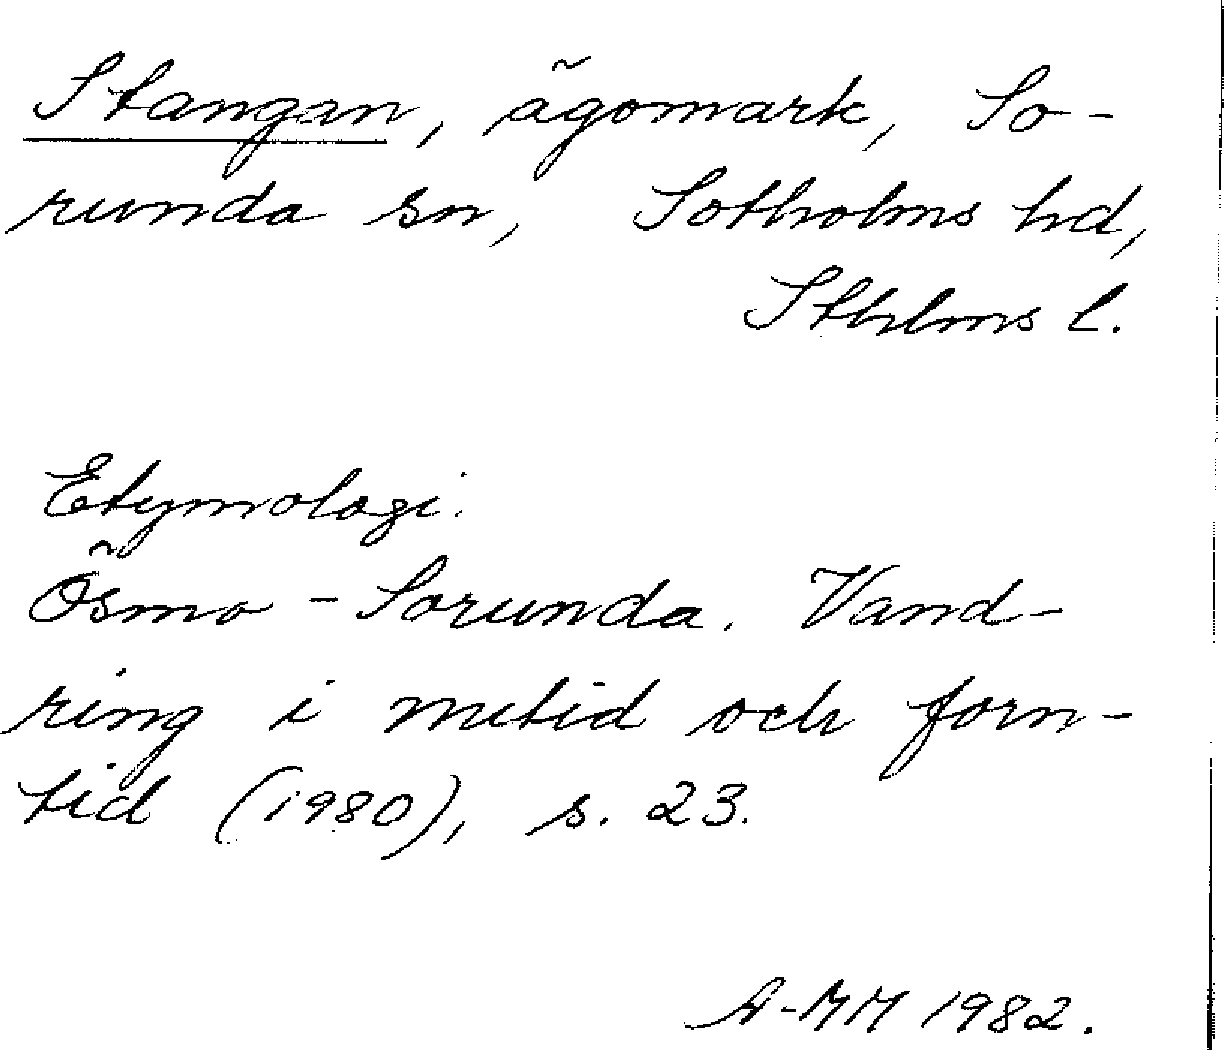 Stangan, ägomark, So-
runda sn, Sotholms hd,
Sthlms l.
Etymologi.
Ösmo - Sorunda. Vand-
ring i nutid och forn-
tid (1980), s. 23.
A-MM 1982.